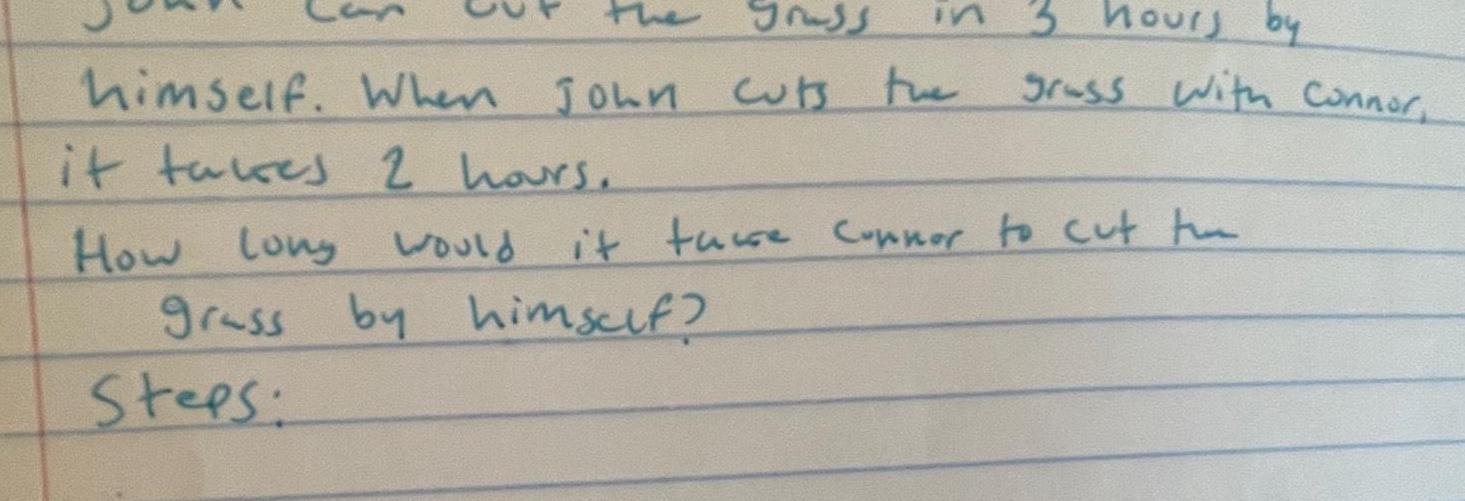 John can cut the grass in 3 hours by
himself. When John cuts the grass with Connor,
it takes 2 hours.
How long would it take Connor to cut the
grass by himself?
Steps: